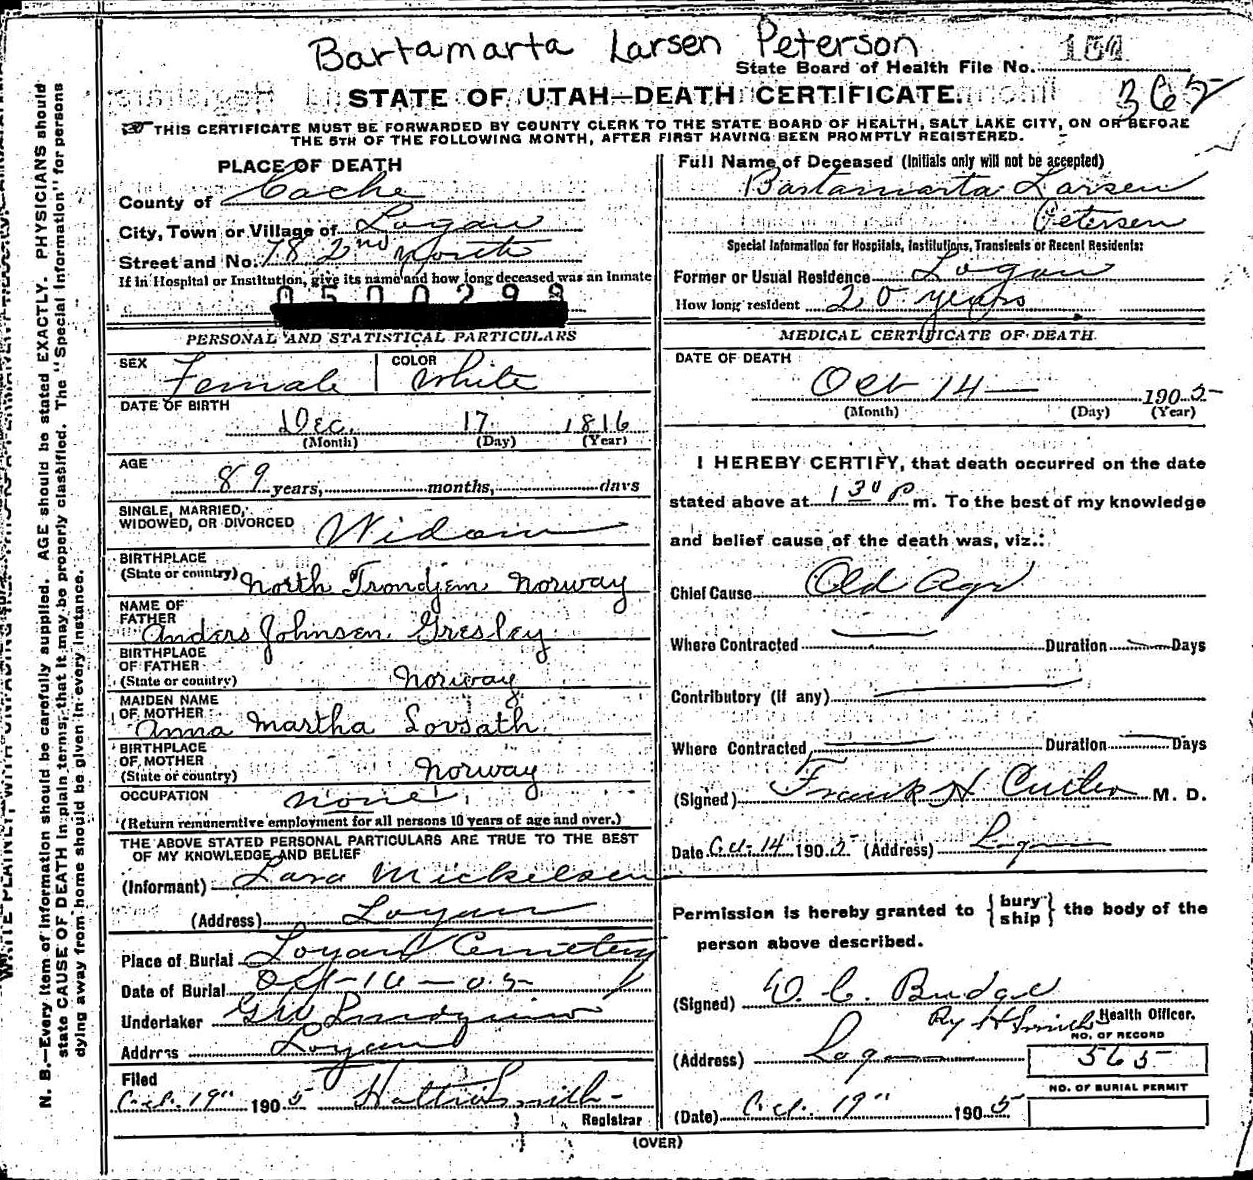 Bartamarta Larsen Peterson
State Board of Health File No. 151
365
STATE OF UTAH—DEATH CERTIFICATE.
THIS CERTIFICATE MUST BE FORWARDED BY COUNTY CLERK TO THE STATE BOARD OF HEALTH, SALT LAKE CITY, ON OR BEFORE
THE 5TH OF THE FOLLOWING MONTH, AFTER FIRST HAVING BEEN PROMPTLY REGISTERED.
N. B.—Every item of information should be carefully supplied. AGE should be stated EXACTLY. PHYSICIANS should
state CAUSE OF DEATH in plain terms, that it may be properly classified. The "Special Information" for persons
dying away from home should be given in every instance.
PLACE OF DEATH
County of Cache
City, Town or Village of Logan
Street and No. 78 2nd North
If in Hospital or Institution, give its name and how long deceased was an Inmate
0500299
PERSONAL AND STATISTICAL PARTICULARS
SEX Female COLOR White
DATE OF BIRTH
Dec. 17 1816
(Month) (Day) (Year)
AGE
89 years, months, days
SINGLE, MARRIED,
WIDOWED, OR DIVORCED Widow
BIRTHPLACE
(State or country) North Trondjem Norway
NAME OF
FATHER Anders Johnsen Gresley
BIRTHPLACE
OF FATHER
(State or country) Norway
MAIDEN NAME
OF MOTHER Anna Martha Lovsath
BIRTHPLACE
OF MOTHER
(State or country) Norway
OCCUPATION none
(Return remunerative employment for all persons 10 years of age and over.)
THE ABOVE STATED PERSONAL PARTICULARS ARE TRUE TO THE BEST
OF MY KNOWLEDGE AND BELIEF
(Informant) Lara Mickelsen
(Address) Logan
Place of Burial Logan Cemetery
Date of Burial Oct-16-05
Undertaker GW
Address Logan
Filed
Oct. 19" 1905 Hattie Smith
Registrar
Full Name of Deceased (Initials only will not be accepted)
Bartamarta Larsen
Petersen
Special Information for Hospitals, Institutions, Transients or Recent Residents:
Former or Usual Residence Logan
How long resident 20 years
MEDICAL CERTIFICATE OF DEATH.
DATE OF DEATH
Oct 14 1905
(Month) (Day) (Year)
I HEREBY CERTIFY, that death occurred on the date
stated above at 1 30 P m. To the best of my knowledge
and belief cause of the death was, viz.:
Chief Cause Old Age
Where Contracted Duration Days
Contributory (if any)
Where Contracted Duration Days
(Signed) Frank H Cutler M. D.
Date Oct-14 1905 (Address) Logan
Permission is hereby granted to {bury ship} the body of the
person above described.
(Signed) O. C. Budge
By H Smith Health Officer.
NO. OF RECORD
(Address) Logan 565
NO. OF BURIAL PERMIT
(Date) Oct. 19" 1905
(OVER)